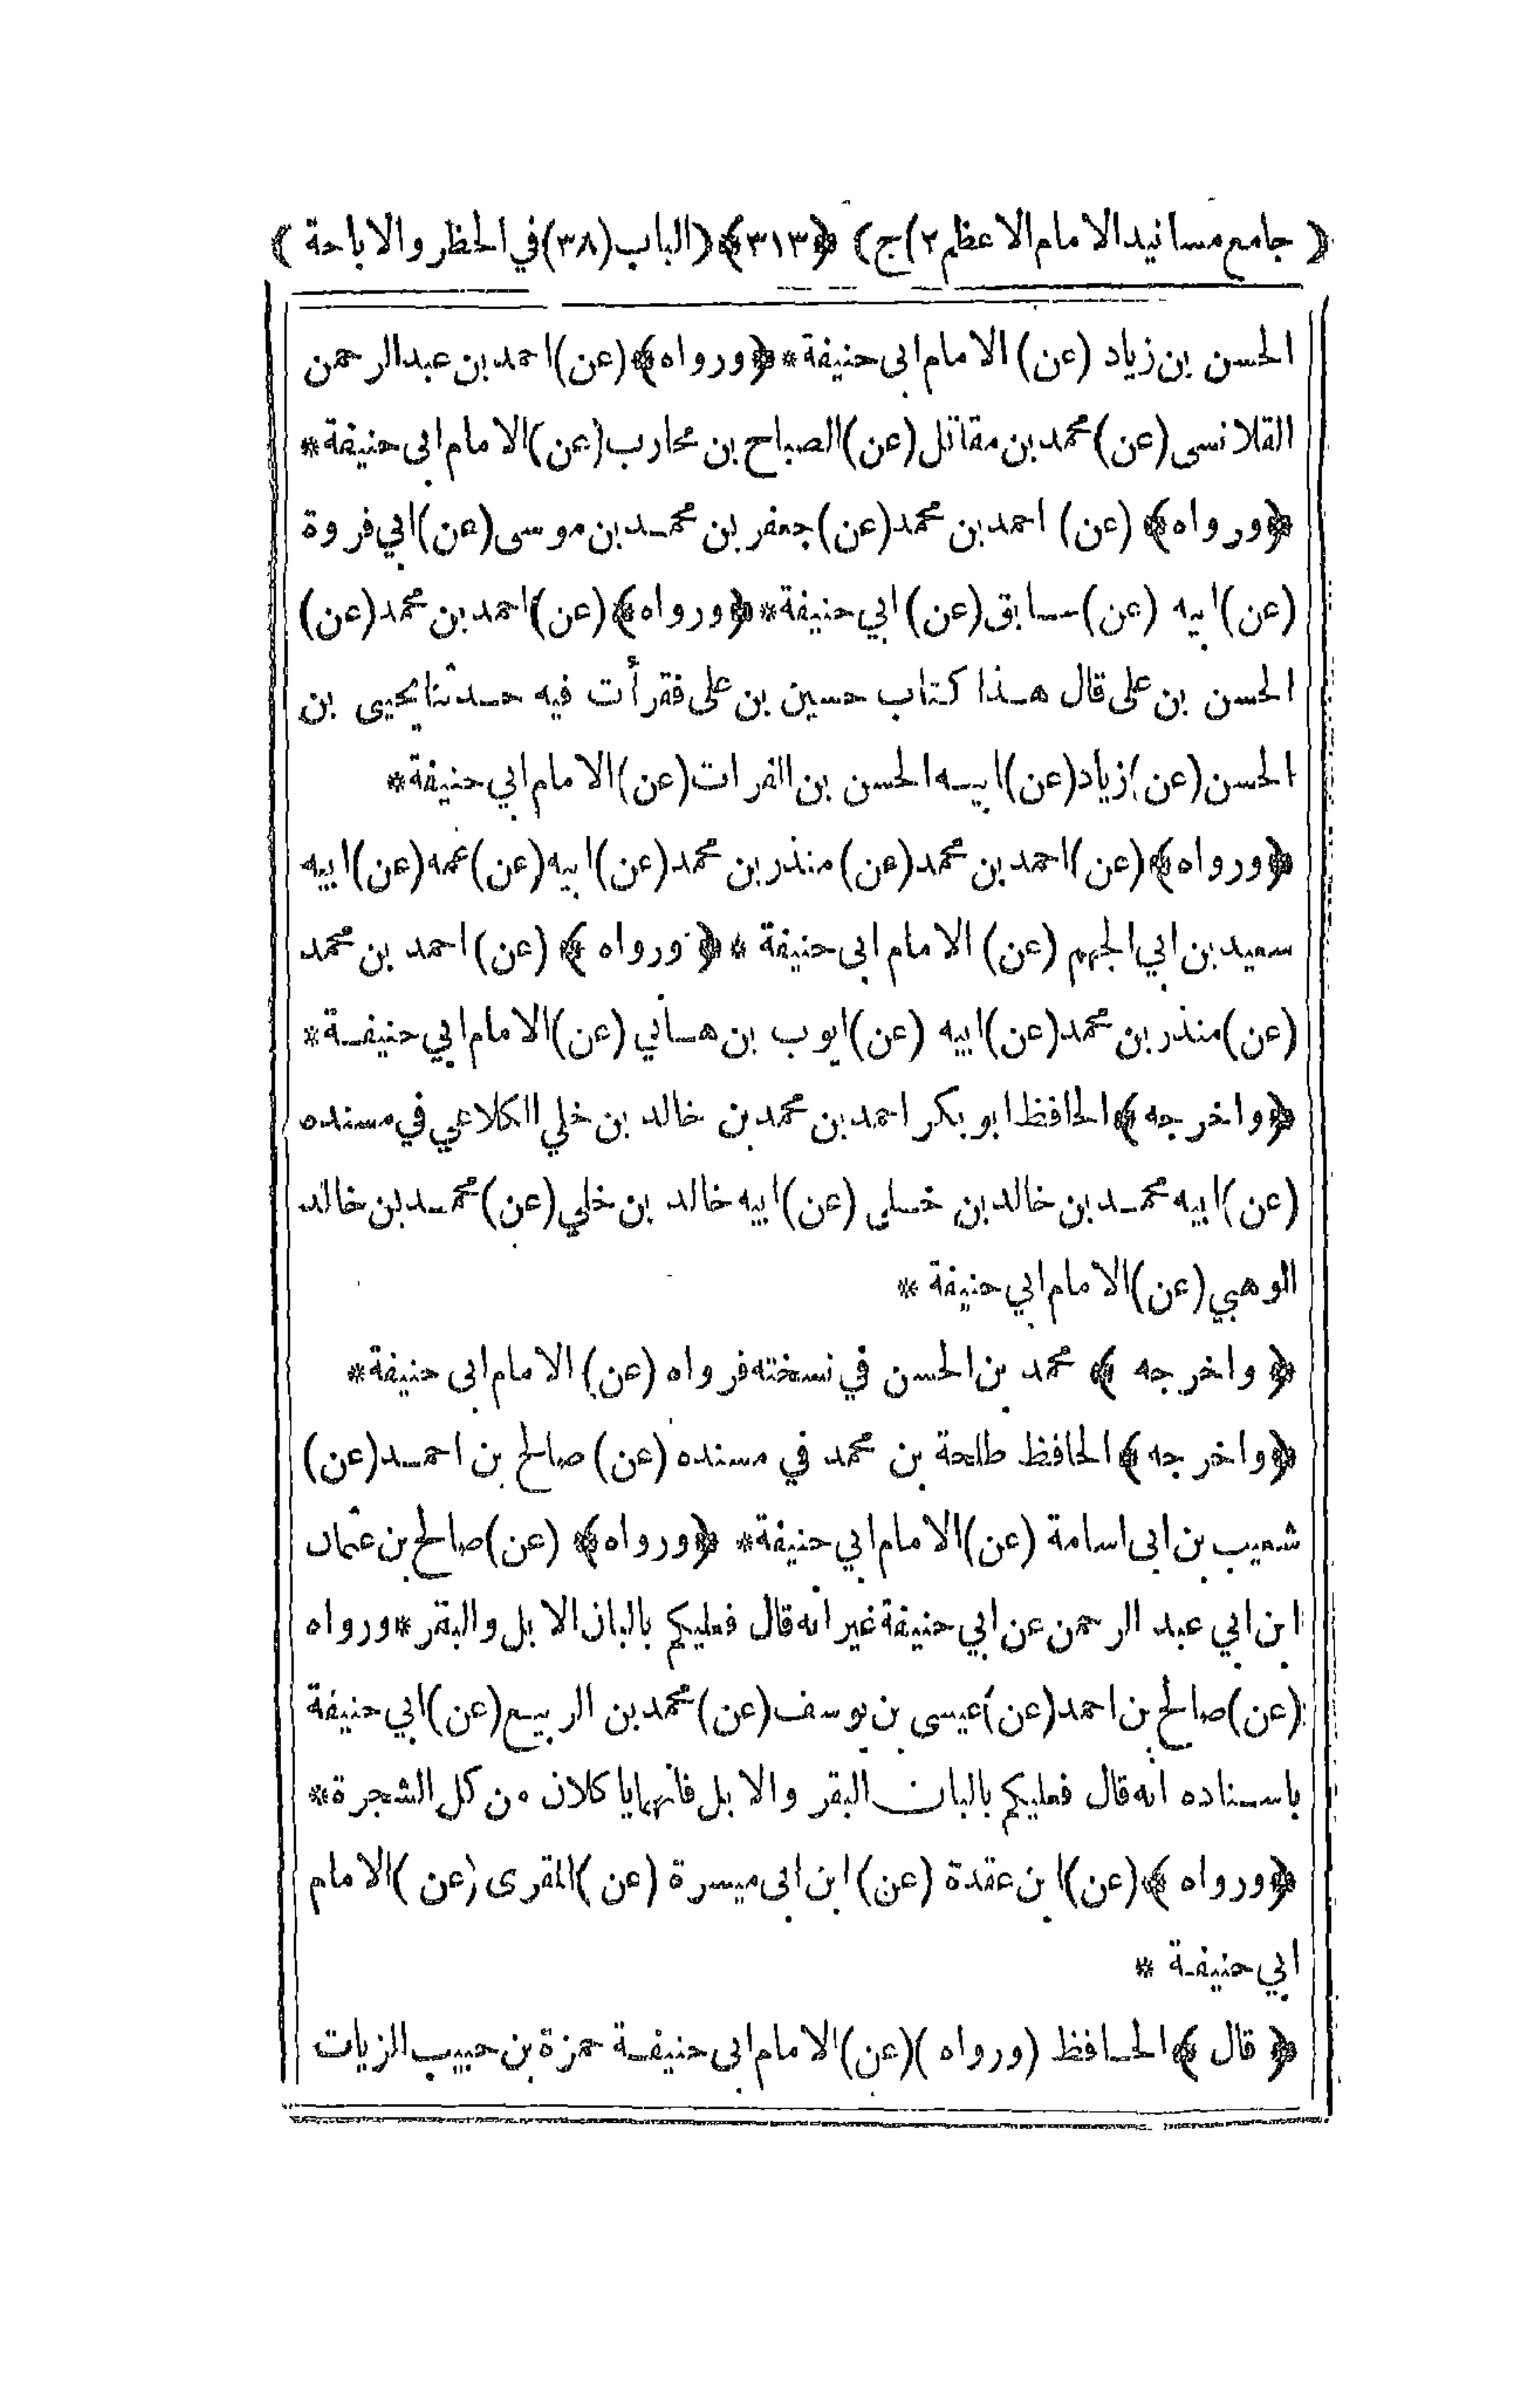 ﴿ جامع مسانيد الامام الاعظم ٢)ج ﴾ ﴿٣١٣﴾ ﴿الباب(٣٨)في الحظر والاباحة ﴾
الحسن بن زياد (عن) الامام ابى حنيفة* ﴿ورواه﴾ (عن)احمد بن عبدالرحمن
القلانسى(عن)محمد بن مقاتل(عن)الصباح بن محارب(عن)الامام ابى حنيفة*
﴿ورواه﴾ (عن) احمد بن محمد(عن)جعفر بن محمد بن موسى(عن)ابي فروة
(عن)ابيه (عن)سابق(عن)ابي حنيفة* ﴿ورواه﴾(عن)احمد بن محمد(عن)
الحسن بن على قال هذا كتاب حسين بن على فقرأت فيه حدثنا يحيى بن
الحسن(عن)زياد(عن)ابيه الحسن بن الفرات(عن)الامام ابي حنيفة*
﴿ورواه﴾(عن)احمد بن محمد(عن)منذر بن محمد(عن)ابيه(عن)عمه(عن)ابيه
سعيد بن ابي الجهم (عن) الامام ابى حنيفة * ﴿ورواه﴾ (عن)احمد بن محمد
(عن)منذر بن محمد(عن)ابيه (عن)ايوب بن هانى(عن)الامام ابي حنيفة*
﴿واخرجه﴾الحافظ ابو بكر احمد بن محمد بن خالد بن خلي الكلاعي في مسنده
(عن)ابيه محمد بن خالد بن خلى (عن)ابيه خالد بن خلي(عن)محمد بن خالد
الوهبي(عن)الامام ابي حنيفة *
﴿ واخرجه ﴾ محمد بن الحسن في نسخته فرواه (عن) الامام ابى حنيفة*
﴿واخرجه﴾الحافظ طلحة بن محمد في مسنده (عن) صالح بن احمد(عن)
شعيب بن ابى اسامة (عن)الامام ابي حنيفة* ﴿ورواه﴾ (عن)صالح بن عثمان
ابن ابي عبد الرحمن عن ابي حنيفة غير انه قال فعليكم بالبان الابل والبقر*ورواه
(عن)صالح بن احمد(عن)عيسى بن يوسف(عن)محمد بن الربيع(عن)ابي حنيفة
باسناده انه قال فعليكم بالبان البقر والابل فانهما ياكلان من كل الشجرة*
﴿ورواه﴾(عن)ابن عقدة (عن)ابن ابى ميسرة (عن)المقرى(عن)الامام
ابي حنيفة *
﴿ قال ﴾الحافظ (ورواه)(عن)الامام ابى حنيفة حمزة بن حبيب الزيات